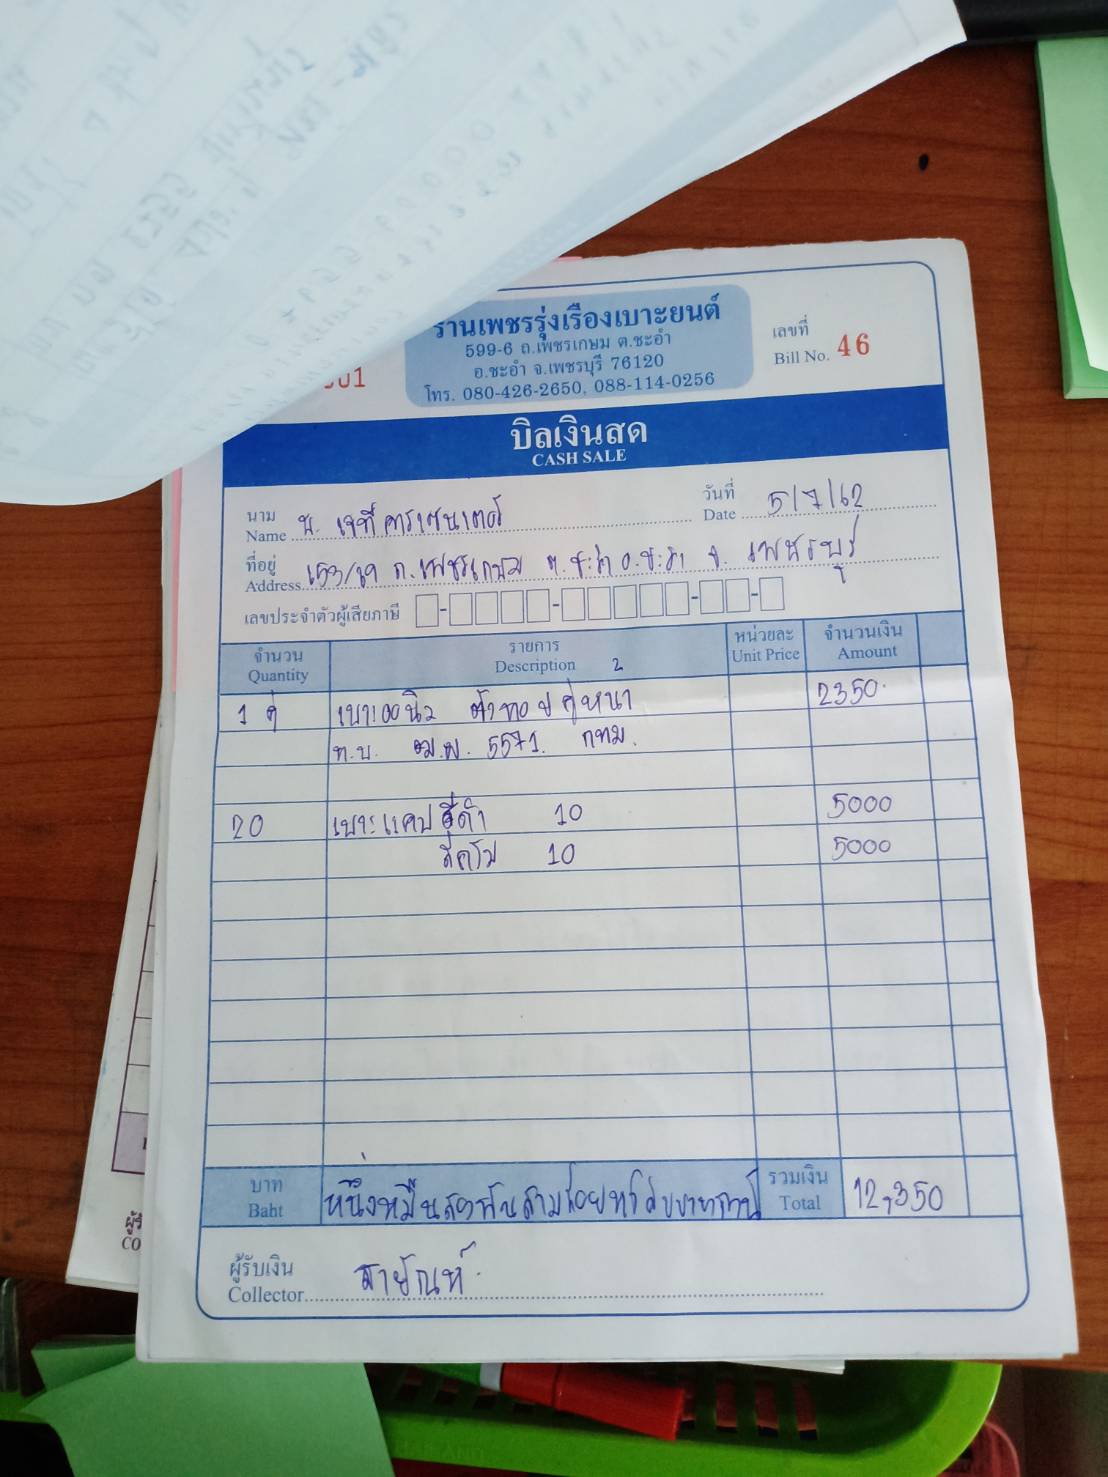 ร้านเพชรรุ่งเรืองเบาะยนต์
599-6 ถ.เพชรเกษม ต.ชะอำ
อ.ชะอำ จ.เพชรบุรี 76120
โทร. 080-426-2650, 088-114-0256
001
เลขที่
Bill No. 46
บิลเงินสด
CASH SALE
นาม
Name บ. เจที คาร์เซนเตอร์
วันที่
Date 5/7/62
ที่อยู่
Address ถ.เพชรเกษม ต.ชะอำ อ.ชะอำ จ. เพชรบุรี
เลขประจำตัวผู้เสียภาษี
จำนวน รายการ หน่วยละ จำนวนเงิน
Quantity Description 2 Unit Price Amount
1 คู่ ตัวทอป คู่หน้า 2350.
ท.บ. 5571. กทม.
20 เบาะแคป สีดำ 10 5000
สีครีม 10 5000
บาท หนึ่งหมื่นสองพันสามร้อยห้าสิบบาทถ้วน รวมเงิน 12,350
Baht Total
ผู้รับเงิน
Collector สายัณห์.